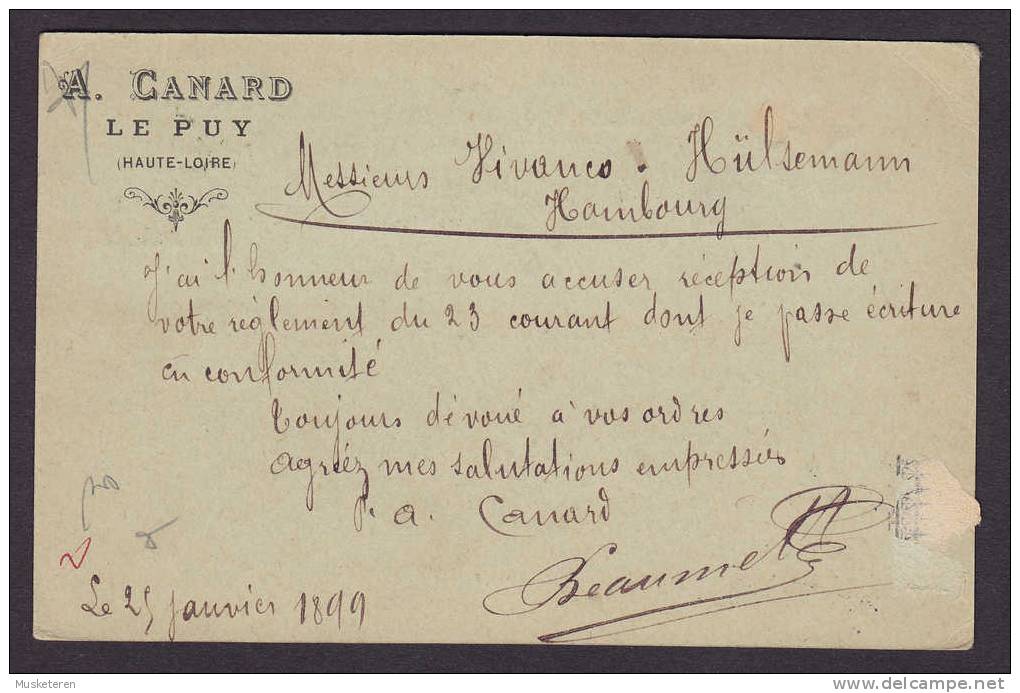 A. CANARD
LE PUY
(HAUTE-LOIRE)
Messieurs Vivanco. Hülsemann
Hambourg
J'ai l'honneur de vous accuser réception de
votre règlement du 23 courant dont je passe écriture
en conformité
Toujours dévoué à vos ordres
agréez mes salutations empressées
P. a. Canard
Beaumet
Le 25 janvier 1899
Musketeren
delcampe.net